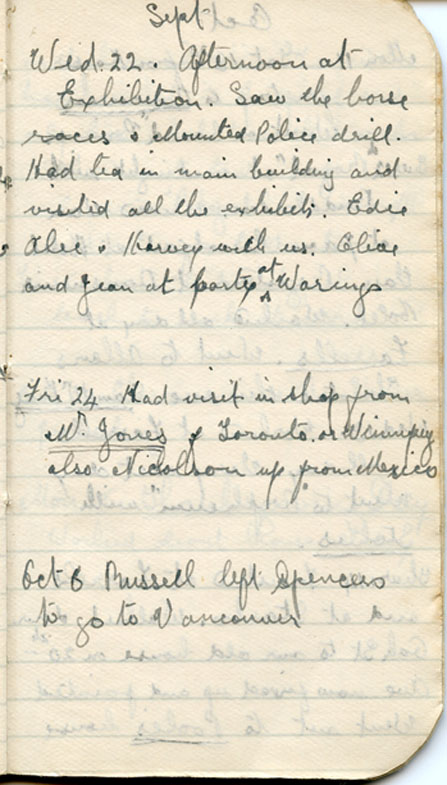 Sept
Wed. 22. Afternoon at
Exhibition. Saw the horse
races & Mounted Police drill.
Had tea in main building and
visited all the exhibits. Edie
Alec & Harvey with us.
and Jean at party at Warings
Fri 24 Had visit in shop from
Mr Jones of Toronto or Winnipeg
also Nicholson up from Mexico
Oct 6 Russell left Spencers
to go to Vancouver